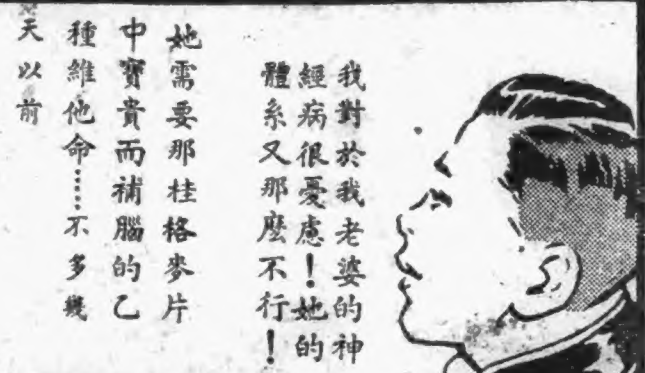 我對於我老婆的神
經病很憂慮！她的
體系又那麼不行！
她需要那桂格麥片
中寶貴而補腦的乙
種維他命……不多幾
天以前